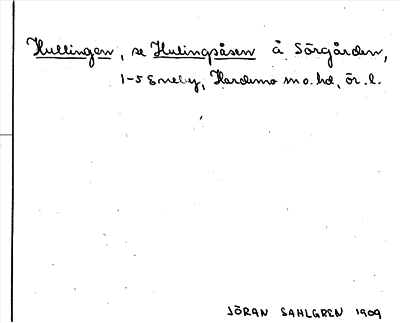 Hullingen, se Hulingsåsen å Sörgården,
1-5 Eneby, Hardemo sn o. hd, ör. l.
JÖRAN SAHLGREN 1909